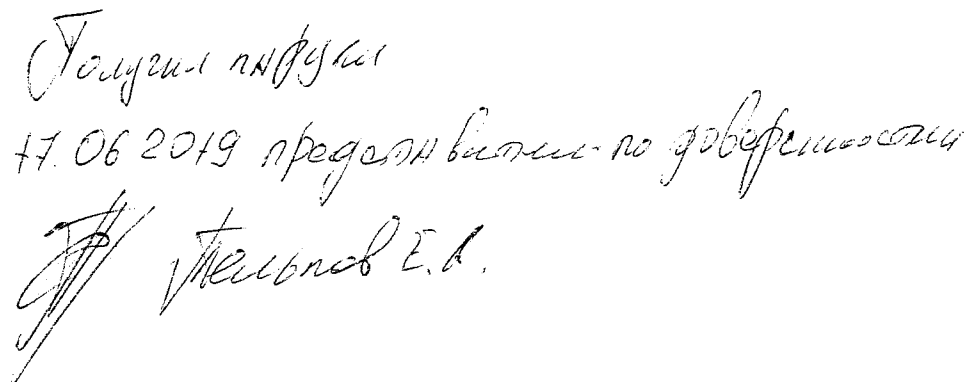 Получил на руки
17.06 2019 представитель по доверенности
Тельпов Е.А.